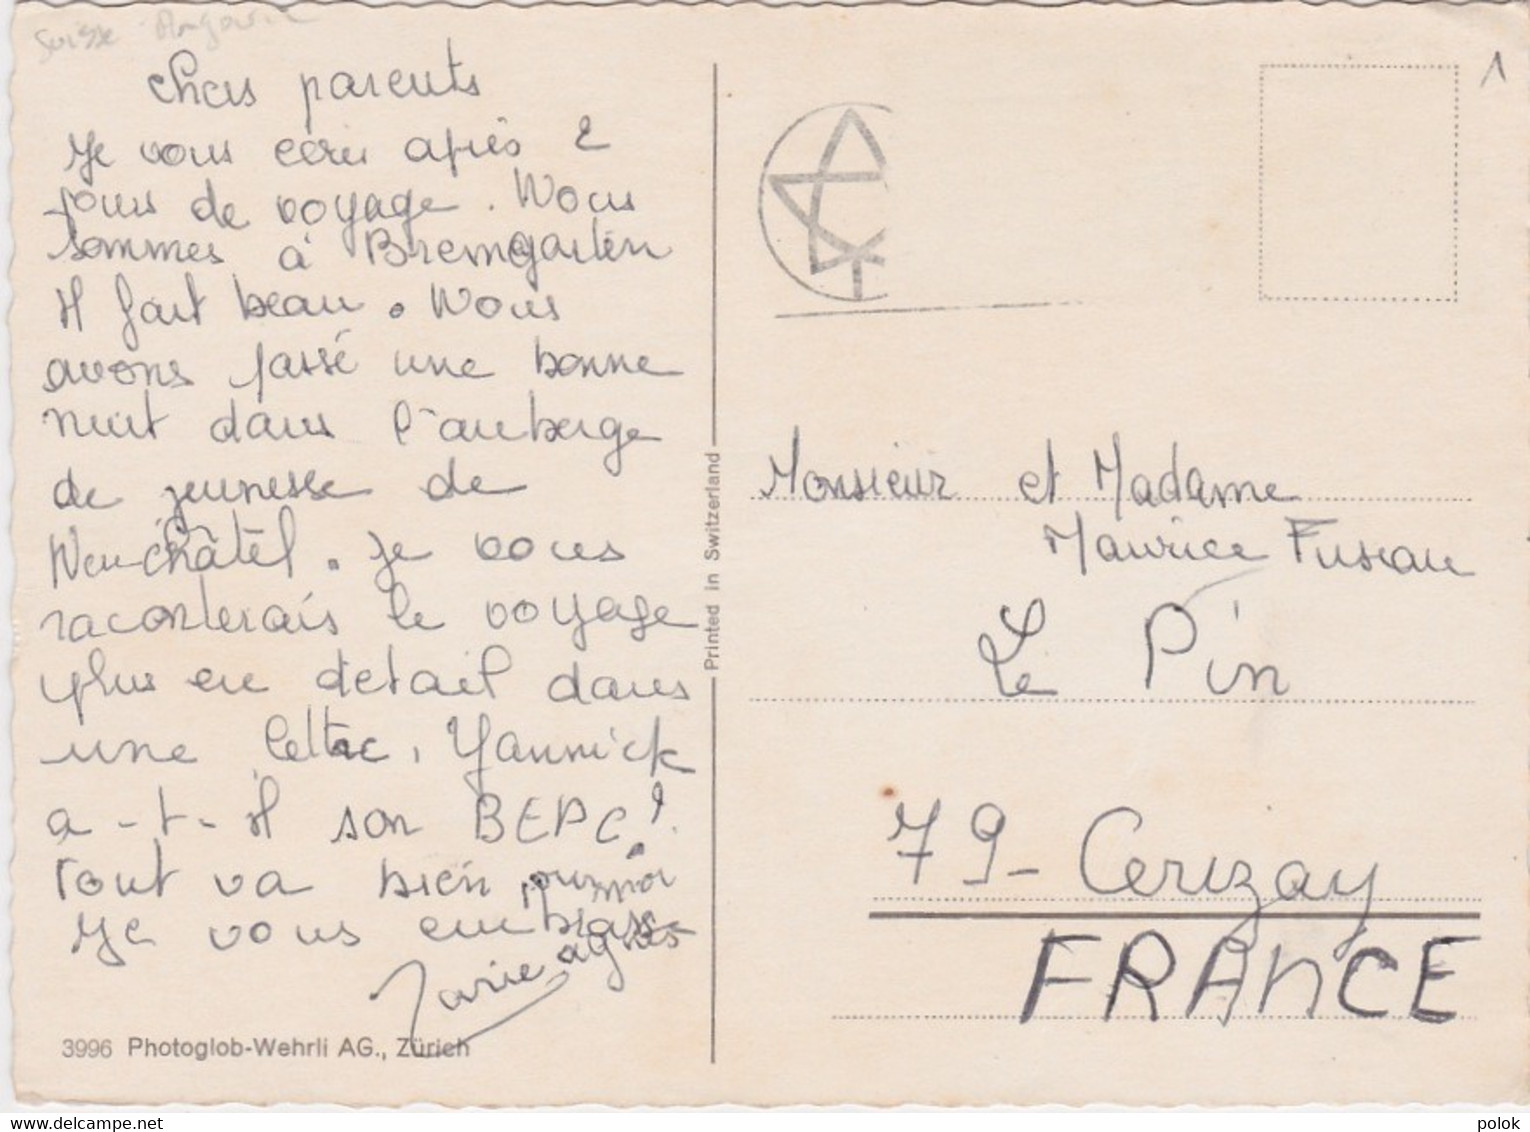 Suisse
Chers parents
Je vous écris après 2
jours de voyage. Nous
sommes à Bremgarten
Il fait beau. Nous
avons passé une bonne
nuit dans l'auberge
de jeunesse de
Neuchâtel. Je vous
raconterais le voyage
plus en détail dans
une lettre, Yannick
a-t-il son BEPC?
Tout va bien pour moi
Je vous embrasse
Marie agnès
3996 Photoglob-Wehrli AG., Zürich
Printed in Switzerland
1
Monsieur et Madame
Maurice Fuseau
Le Pin
79-Cerizay
FRANCE
www.delcampe.net
polok